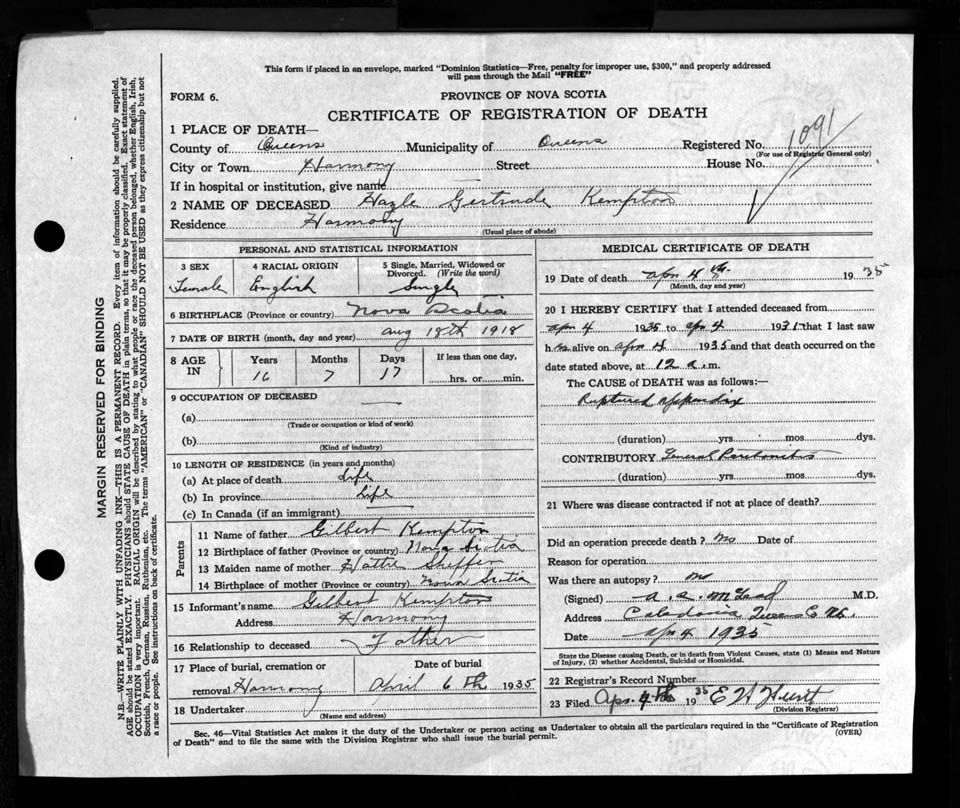 This form if placed in an envelope, marked "Dominion Statistics—Free, penalty for improper use, $300," and properly addressed
will pass through the Mail "FREE"
FORM 6.
PROVINCE OF NOVA SCOTIA
CERTIFICATE OF REGISTRATION OF DEATH
1 PLACE OF DEATH—
County of Queens Municipality of Queens Registered No. 1091
(For use of Registrar General only)
City or Town Harmony Street House No.
If in hospital or institution, give name
2 NAME OF DECEASED Hazle Gertrude Kempton
Residence Harmony
(Usual place of abode)
PERSONAL AND STATISTICAL INFORMATION
3 SEX 4 RACIAL ORIGIN 5 Single, Married, Widowed or
Divorced. (Write the word)
Female English Single
6 BIRTHPLACE (Province or country) Nova Scotia
7 DATE OF BIRTH (month, day and year) Aug 18th 1918
8 AGE IN Years Months Days If less than one day,
16 7 17 hrs. or min.
9 OCCUPATION OF DECEASED
(a)
(Trade or occupation or kind of work)
(b)
(Kind of industry)
10 LENGTH OF RESIDENCE (in years and months)
(a) At place of death Life
(b) In province Life
(c) In Canada (if an immigrant)
Parents
11 Name of father Gilbert Kempton
12 Birthplace of father (Province or country) Nova Scotia
13 Maiden name of mother Hattie Sheffer
14 Birthplace of mother (Province or country) Nova Scotia
15 Informant's name Gilbert Kempton
Address Harmony
16 Relationship to deceased Father
17 Place of burial, cremation or Date of burial
removal Harmony April 6th 1935
18 Undertaker
(Name and address)
MEDICAL CERTIFICATE OF DEATH
19 Date of death Apr 4th 1935
(Month, day and year)
20 I HEREBY CERTIFY that I attended deceased from
Apr 4 1935 to Apr 4 1935 that I last saw
h alive on Apr 4 1935 and that death occurred on the
date stated above, at 12 a.m.
The CAUSE of DEATH was as follows:—
Ruptured Appendix
(duration) yrs mos dys.
CONTRIBUTORY General Peritonitis
(duration) yrs. mos. dys.
21 Where was disease contracted if not at place of death?
Did an operation precede death? no Date of
Reason for operation
Was there an autopsy? no
(Signed) M.D.
Address Caledonia Queens Co NS.
Date Apr 4 1935
State the Disease causing Death, or in death from Violent Causes, state (1) Means and Nature
of Injury, (2) whether Accidental, Suicidal or Homicidal.
22 Registrar's Record Number
23 Filed Apr 4th 1935 E
(Division Registrar)
Sec. 46—Vital Statistics Act makes it the duty of the Undertaker or person acting as Undertaker to obtain all the particulars required in the "Certificate of Registration
of Death" and to file the same with the Division Registrar who shall issue the burial permit. (OVER)
MARGIN RESERVED FOR BINDING
N.B.—WRITE PLAINLY WITH UNFADING INK—THIS IS A PERMANENT RECORD. Every item of information should be carefully supplied.
AGE should be stated EXACTLY. PHYSICIANS should STATE CAUSE OF DEATH in plain terms, so that it may be properly classified. Exact statement of
OCCUPATION is very important. RACIAL ORIGIN will be described by stating to what people or race the deceased person belonged, whether English, Irish,
Scottish, French, German, Russian, Ruthenian, etc. The terms "AMERICAN" or "CANADIAN" SHOULD NOT BE USED as they express citizenship but not
a race or people. See instructions on back of certificate.